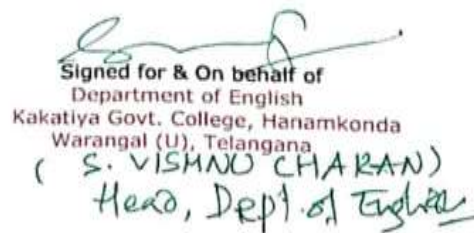 Signed for & On behalf of
Department of English
Kakatiya Govt. College, Hanamkonda
Warangal (U), Telangana
( S. VISHNU CHARAN)
Head, Dept. of English